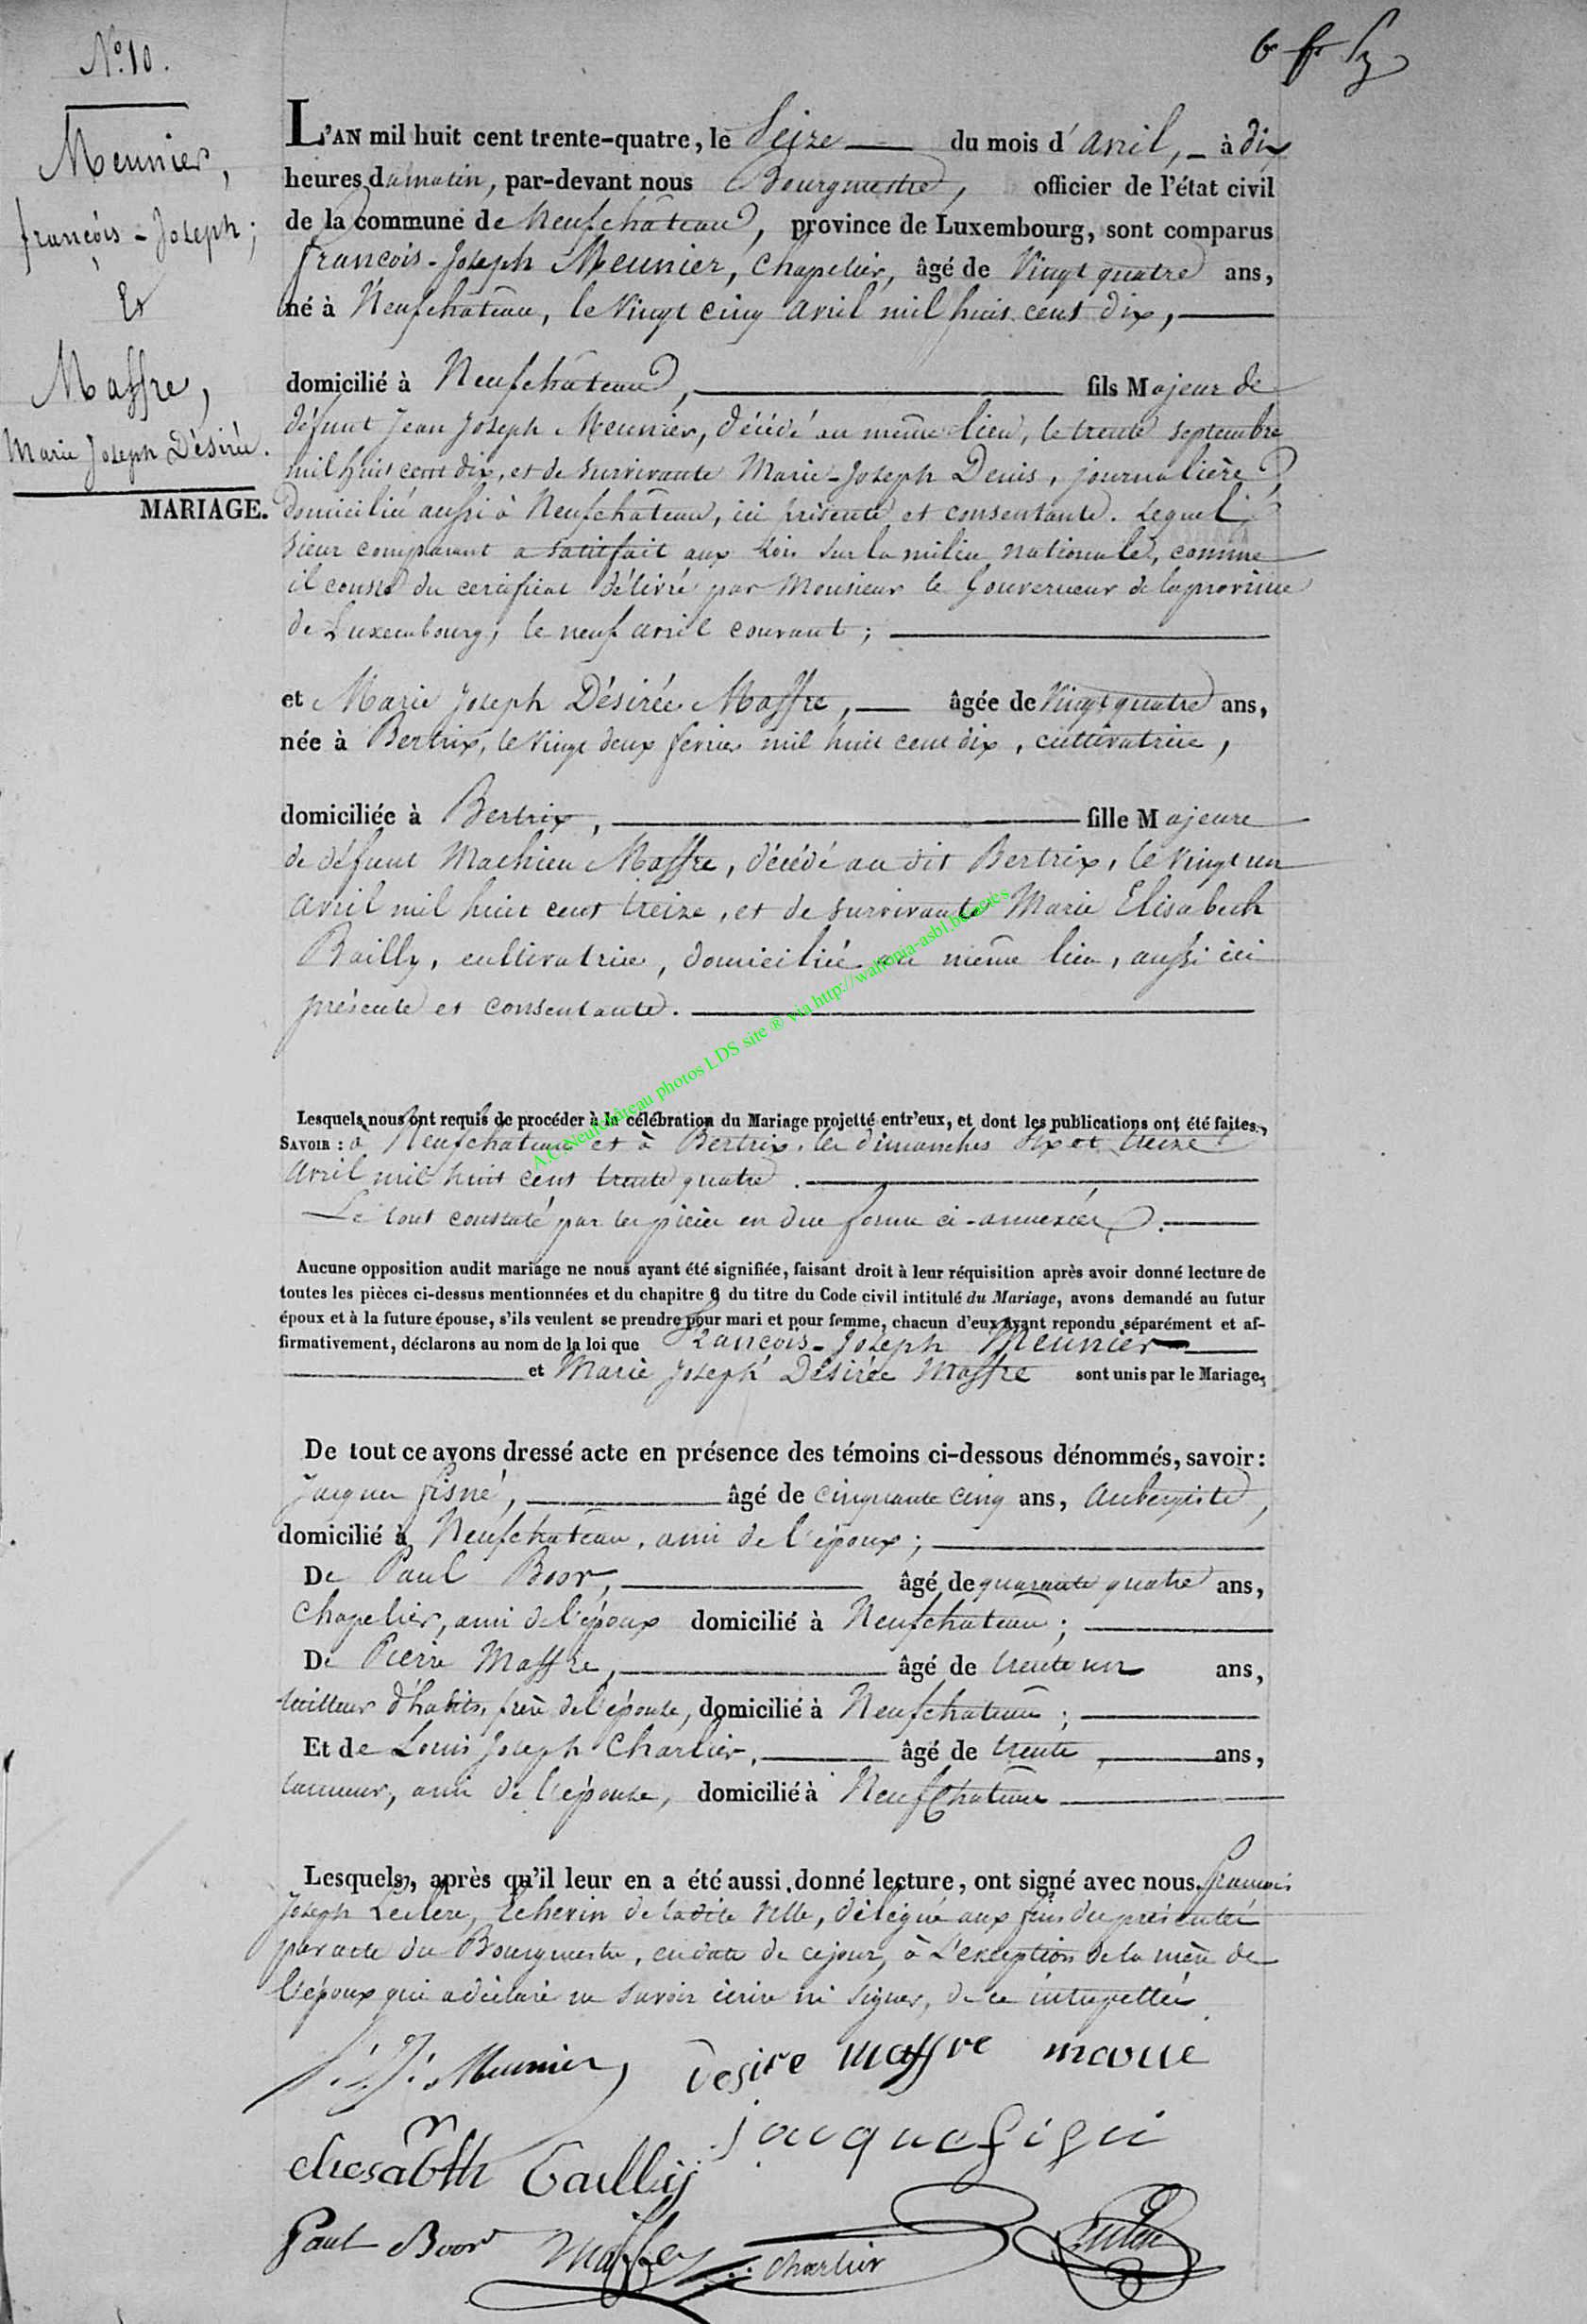 N.º 10.
Meunier,
françois-Joseph;
Et
Maffre,
Marie Joseph Désirée.
MARIAGE.
L'AN mil huit cent trente-quatre, le Seize du mois d'avril, à dix
heures du matin, par-devant nous Bourgmestre, officier de l'état civil
de la commune de Neufchâteau, province de Luxembourg, sont comparus
françois-Joseph Meunier, Chapelier, âgé de Vingt quatre ans,
né à Neufchâteau, le Vingt cinq avril mil huit cent dix,
domicilié à Neufchâteau, fils Majeur de
défunt Jean Joseph Meunier, décédé au même lieu, le trente septembre
mil huit cent dix, et de survivante Marie-Joseph Denis, journalière,
domiciliée aussi à Neufchâteau, ici présente et consentante. Lequel
sieur comparant a satisfait aux lois sur la milice nationale, comme
il conste du certificat délivré par Monsieur le Gouverneur de la province
de Luxembourg, le neuf avril courant;
et Marie Joseph Désirée Maffre, âgée de Vingt quatre ans,
née à Bertrix, le vingt deux fevrier mil huit cent dix, cultivatrice,
domiciliée à Bertrix, fille Majeure
de défunt Mathieu Maffre, décédé au dit Bertrix, le vingt un
avril mil huit cent treize, et de survivante Marie Elisabeth
Bailly, cultivatrice, domiciliée au même lieu, aussi ici
présente et consentante.
A.C. Neufchâteau photos LDS site ® via http://wallonia-asbl.be/actes
Lesquels nous ont requis de procéder à la célébration du Mariage projetté entr'eux, et dont les publications ont été faites,
SAVOIR : à Neufchâteau et à Bertrix, les dimanches six et treize
avril mil huit cent trente quatre.
Le tout constaté par les pièces en due forme ci-annexées.
Aucune opposition audit mariage ne nous ayant été signifiée, faisant droit à leur réquisition après avoir donné lecture de
toutes les pièces ci-dessus mentionnées et du chapitre 6 du titre du Code civil intitulé du Mariage, avons demandé au futur
époux et à la future épouse, s'ils veulent se prendre pour mari et pour femme, chacun d'eux ayant repondu séparément et af-
firmativement, déclarons au nom de la loi que François-Joseph Meunier
et Marie Joseph Désirée Maffre sont unis par le Mariage,
De tout ce avons dressé acte en présence des témoins ci-dessous dénommés, savoir:
Jacques fisné, âgé de cinquante cinq ans, aubergiste,
domicilié à Neufchâteau, ami de l'époux;
De Paul Boor, âgé de quarante quatre ans,
Chapelier, ami de l'époux domicilié à Neufchateau;
De Pierre Maffre, âgé de trente un ans,
tailleur d'habits, frère de l'épouse, domicilié à Neufchateau;
Et de Louis Joseph Charlier, âgé de trente ans,
tanneur, ami de l'épouse, domicilié à Neufchateau
Lesquels, après qu'il leur en a été aussi donné lecture, ont signé avec nous françois
Joseph Leclere, Echevin de ladite Ville, délégué aux fins du présentes
par acte du Bourgmestre, en date de ce jour, à l'exception de la mère de
l'époux qui a déclaré ne savoir écrire ni signer, de ce interpellée
f. J. Meunier, desire maffre marie
jacque fisni
elresabth Bailly
Paul Boor Maffre Charlier